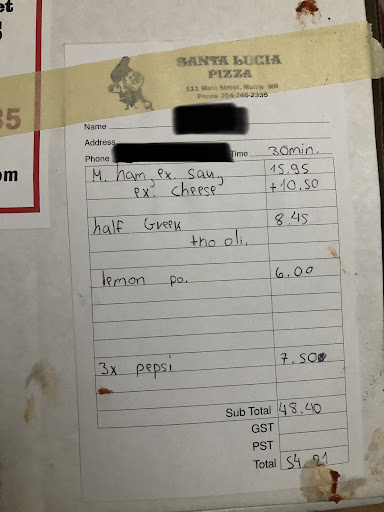 et
SANTA LUCIA
PIZZA
111 Main Street, Morris MB
Phone 204-746-2335
35
Name
Address
Phone Time 30min.
om
M. ham, ex. sau, 15.95
ex. cheese +10.50
half Greek 8.45
+no oli.
lemon po. 6.00
3x pepsi 7.50
Sub Total 48.40
GST
PST
Total 54.21